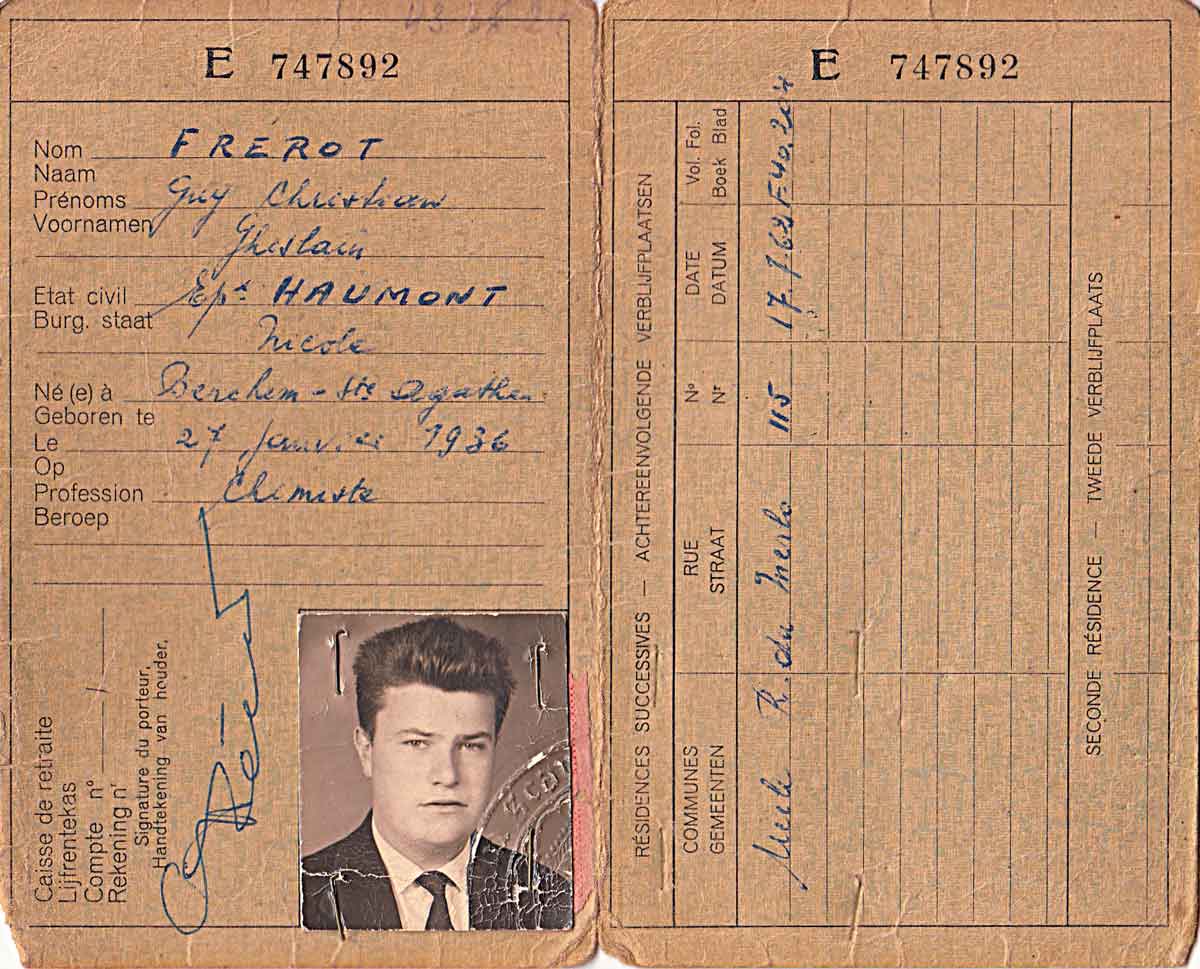 E 747892
Nom FREROT
Naam
Prénoms Guy Christian
Voornamen
Ghislain
Etat civil Epx HAUMONT
Burg. staat
Nicole
Né (e) à Berchem - Ste Agathe
Geboren te
Le 27 janvier 1936
Op
Profession Chimiste
Beroep
Caisse de retraite
Lijfrentekas
Compte n°
Rekening n^r
Signature du porteur,
Handtekening van houder,
E 747892
RÉSIDENCES SUCCESSIVES — ACHTEREENVOLGENDE VERBLIJFPLAATSEN
COMMUNES RUE N° DATE Vol. Fol.
GEMEENTEN STRAAT N^r DATUM Boek Blad
Uccle R. du Merlo 115 17.7.62 F40.204
SECONDE RÉSIDENCE — TWEEDE VERBLIJFPLAATS